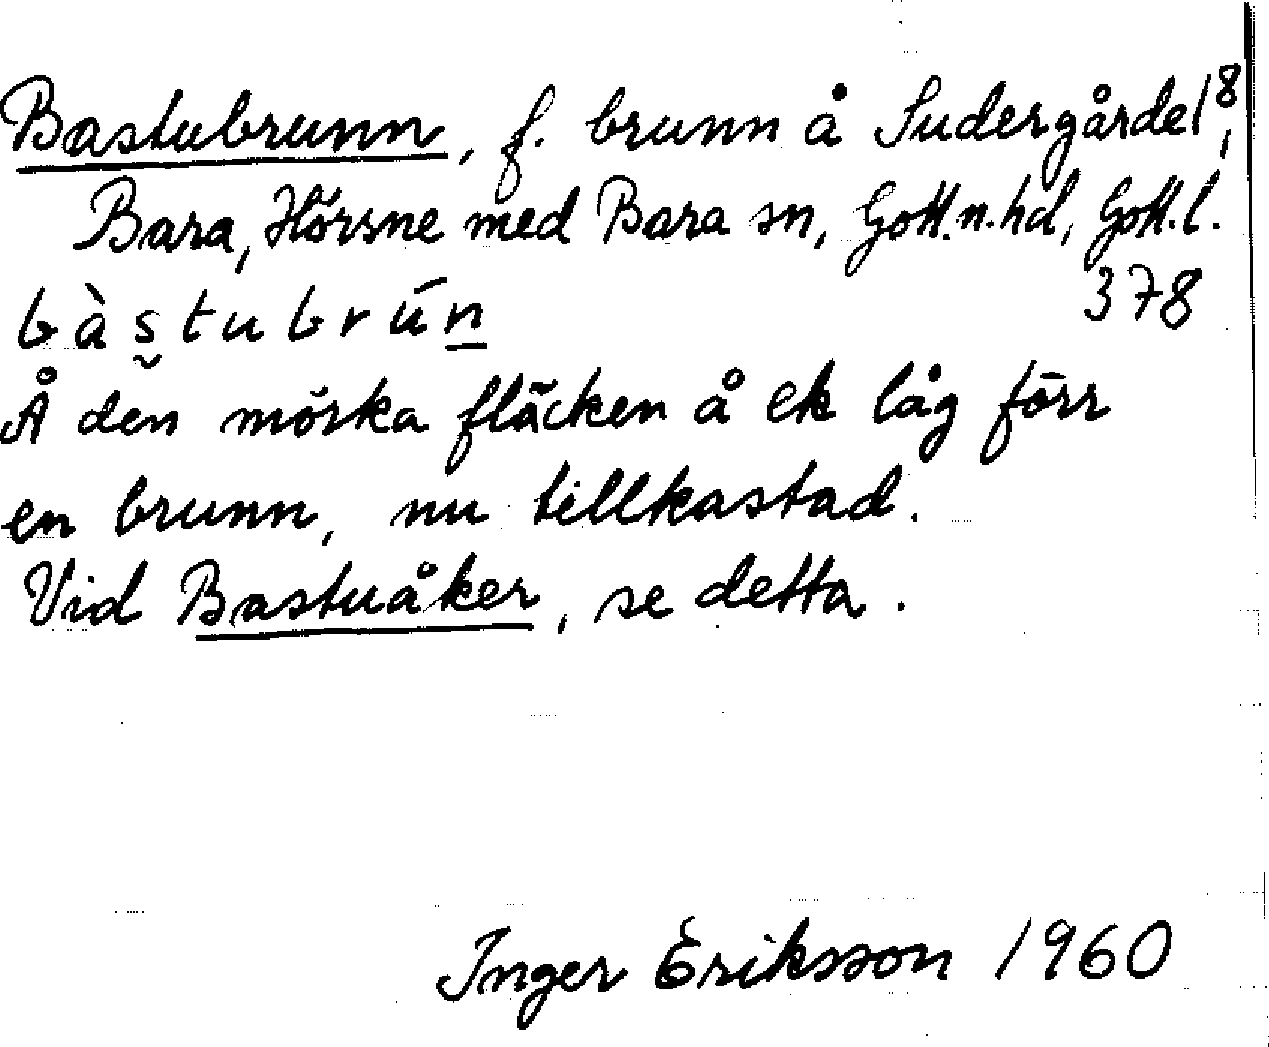 Bastubrunn, f. brunn å Sudergårde 1⁸,
Bara, Hörsne med Bara sn, Gotl.n.hd, Gotl.l.
bàs̮tubrún̲ 378
Å den mörka fläcken å ek låg förr
en brunn, nu tillkastad.
Vid Bastuåker, se detta.
Inger Eriksson 1960